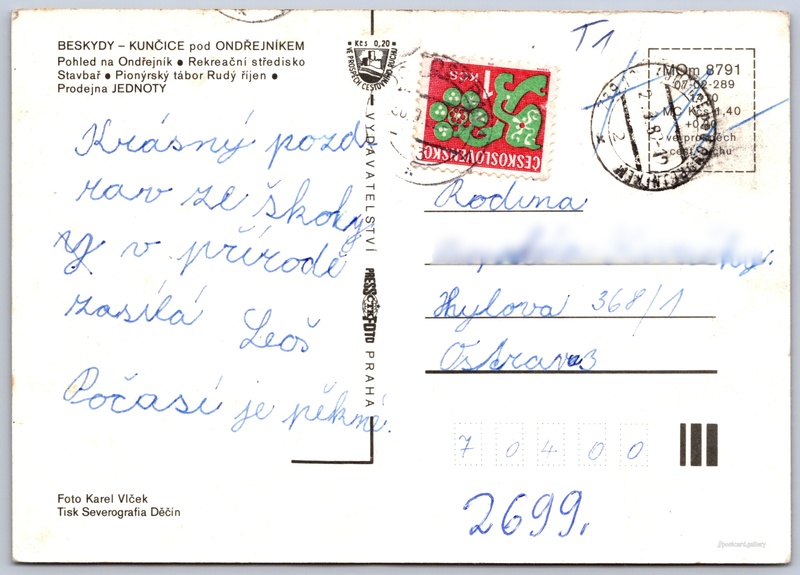 BESKYDY – KUNČICE pod ONDŘEJNÍKEM
Pohled na Ondřejník ● Rekreační středisko
Stavbař ● Pionýrský tábor Rudý říjen ●
Prodejna JEDNOTY
Krásný pozd
rav ze školy
v přírodě
zasílá Leoš
Počasí je pěkné.
Foto Karel Vlček
Tisk Severografia Děčín
Kčs 0,20
VE PROSPĚCH CESTOVNÍHO RUCHU
VYDAVATELSTVÍ
PRESSFOTO
PRAHA
1 KČS
ČESKOSLOVENSKO
T1
MOm 8791
07-02-289
MC Kčs 1,40
ve prospěch
cest. ruchu
Rodina
Hylova 368/1
Ostrava 3
7 0 4 0 0
2699,